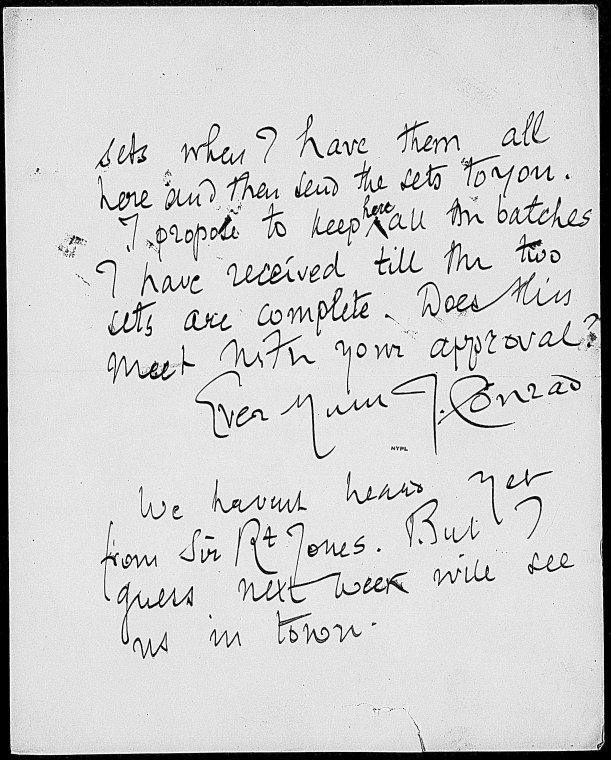 sets when I have them all
here and then send the sets to you.
I propose to keep here all the batches
I have received till the two
sets are complete. Does this
meet with your approval?
Ever yours J. Conrad
NYPL
We havent heard yet
from Sir Rt Jones. But I
guess next week will see
us in town.